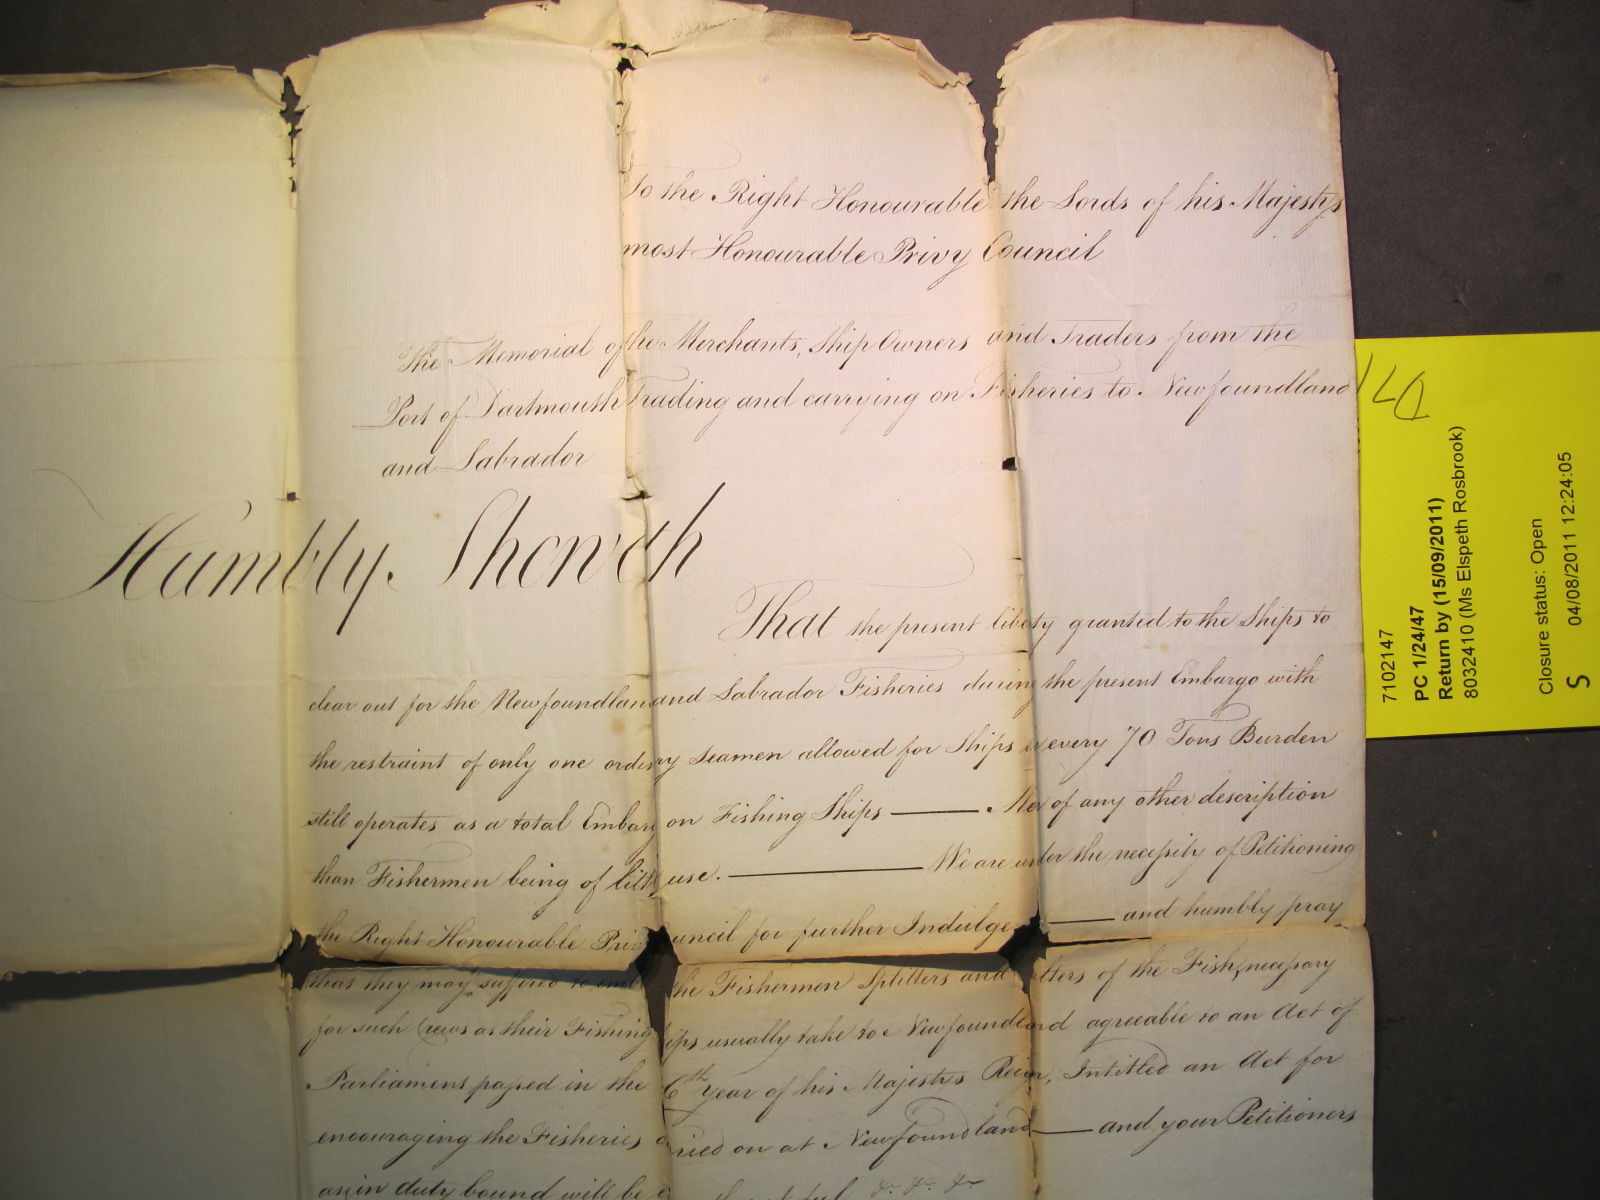 To the Right Honourable the Lords of his Majestys
most Honourable Privy Council
The Memorial of the Merchants, Ship Owners and Traders from the
Port of Dartmouth Trading and carrying on Fisheries to Newfoundland
and Labrador
Humbly Sheweth
That the present liberty granted to the Ships to
clear out for the Newfoundland and Labrador Fisheries during the present Embargo with
the restraint of only one ordinry Seamen allowed for Ships every 70 Tons Burden
still operates as a total Embargo on Fishing Ships — Men of any other description
than Fishermen being of little use. — We are under the necessity of Petitioning
the Right Honourable Privy Council for further Indulge — and humbly pray
that they may suffered to emb the Fishermen Splitters and Salters of the Fish, necessary
for such Crews as their Fishing Ships usually take to Newfoundland agreeable to an Act of
Parliament passed in the 6th year of his Majestys Reign, Intitled an Act for
encouraging the Fisheries carried on at Newfoundland — and your Petitioners
as in duty bound will be &c. &c. &c.
7102147
PC 1/24/47
Return by (15/09/2011)
8032410 (Ms Elspeth Rosbrook)
Closure status: Open
04/08/2011 12:24:05
S